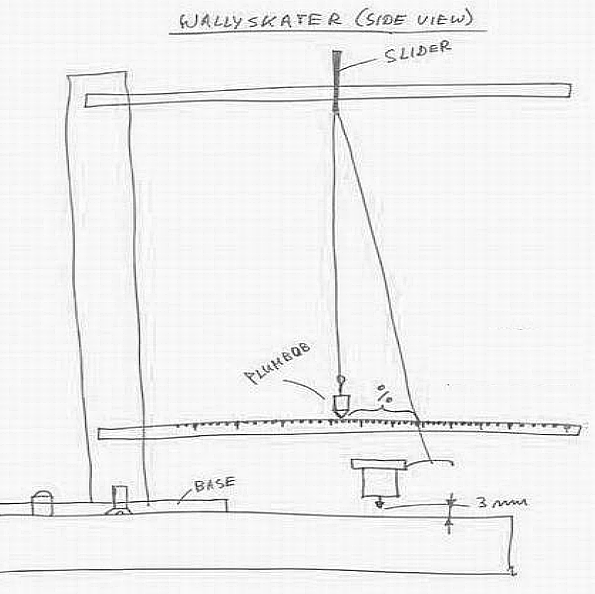 WALLYSKATER (SIDE VIEW)
SLIDER
PLUMBOB
%
BASE
3 mm